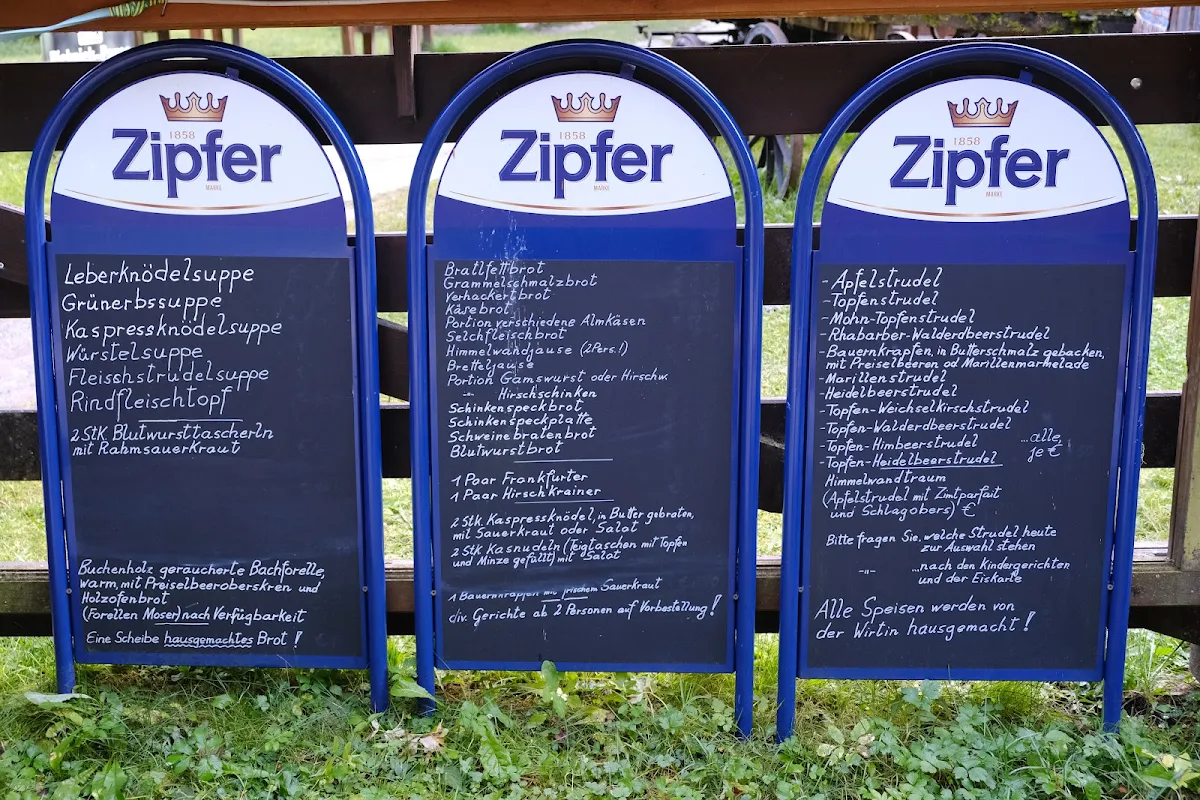 1858
Zipfer
MARKE
Leberknödelsuppe
Grünerbssuppe
Kaspressknödelsuppe
Würstelsuppe
Fleischstrudelsuppe
Rindfleischtopf
2 Stk Blutwursttascherln
mit Rahmsauerkraut
Buchenholz geräucherte Bachforelle,
warm, mit Preiselbeeroberskren und
Holzofenbrot
(Forellen Moser) nach Verfügbarkeit
Eine Scheibe hausgemachtes Brot !
1858
Zipfer
MARKE
Bratlfettbrot
Grammelschmalzbrot
Verhackertbrot
Käsebrot
Portion verschiedene Almkäsen
Selchfleischbrot
Himmelwandjause (2 Pers.!)
Bretteljause
Portion Gamswurst oder Hirschw.
-"- Hirschschinken
Schinkenspeckbrot
Schinkenspeckplatte
Schweinebratenbrot
Blutwurstbrot
1 Paar Frankfurter
1 Paar Hirschkrainer
2 Stk. Kaspressknödel, in Butter gebraten,
mit Sauerkraut oder Salat
2 Stk Kasnudeln (Teigtaschen mit Topfen
und Minze gefüllt) mit Salat
1 Bauernkrapfen mit frischem Sauerkraut
div. Gerichte ab 2 Personen auf Vorbestellung !
1858
Zipfer
MARKE
- Apfelstrudel
- Topfenstrudel
- Mohn-Topfenstrudel
- Rhabarber-Walderdbeerstrudel
- Bauernkrapfen, in Butterschmalz gebacken,
mit Preiselbeeren od Marillenmarmelade
- Marillenstrudel
- Heidelbeerstrudel
- Topfen-Weichselkirschstrudel
- Topfen-Walderdbeerstrudel
- Topfen-Himbeerstrudel ...alle,
- Topfen-Heidelbeerstrudel je €
Himmelwandtraum
(Apfelstrudel mit Zimtparfait
und Schlagobers) €
Bitte fragen Sie, welche Strudel heute
zur Auswahl stehen
-"- ...nach den Kindergerichten
und der Eiskarte
Alle Speisen werden von
der Wirtin hausgemacht !